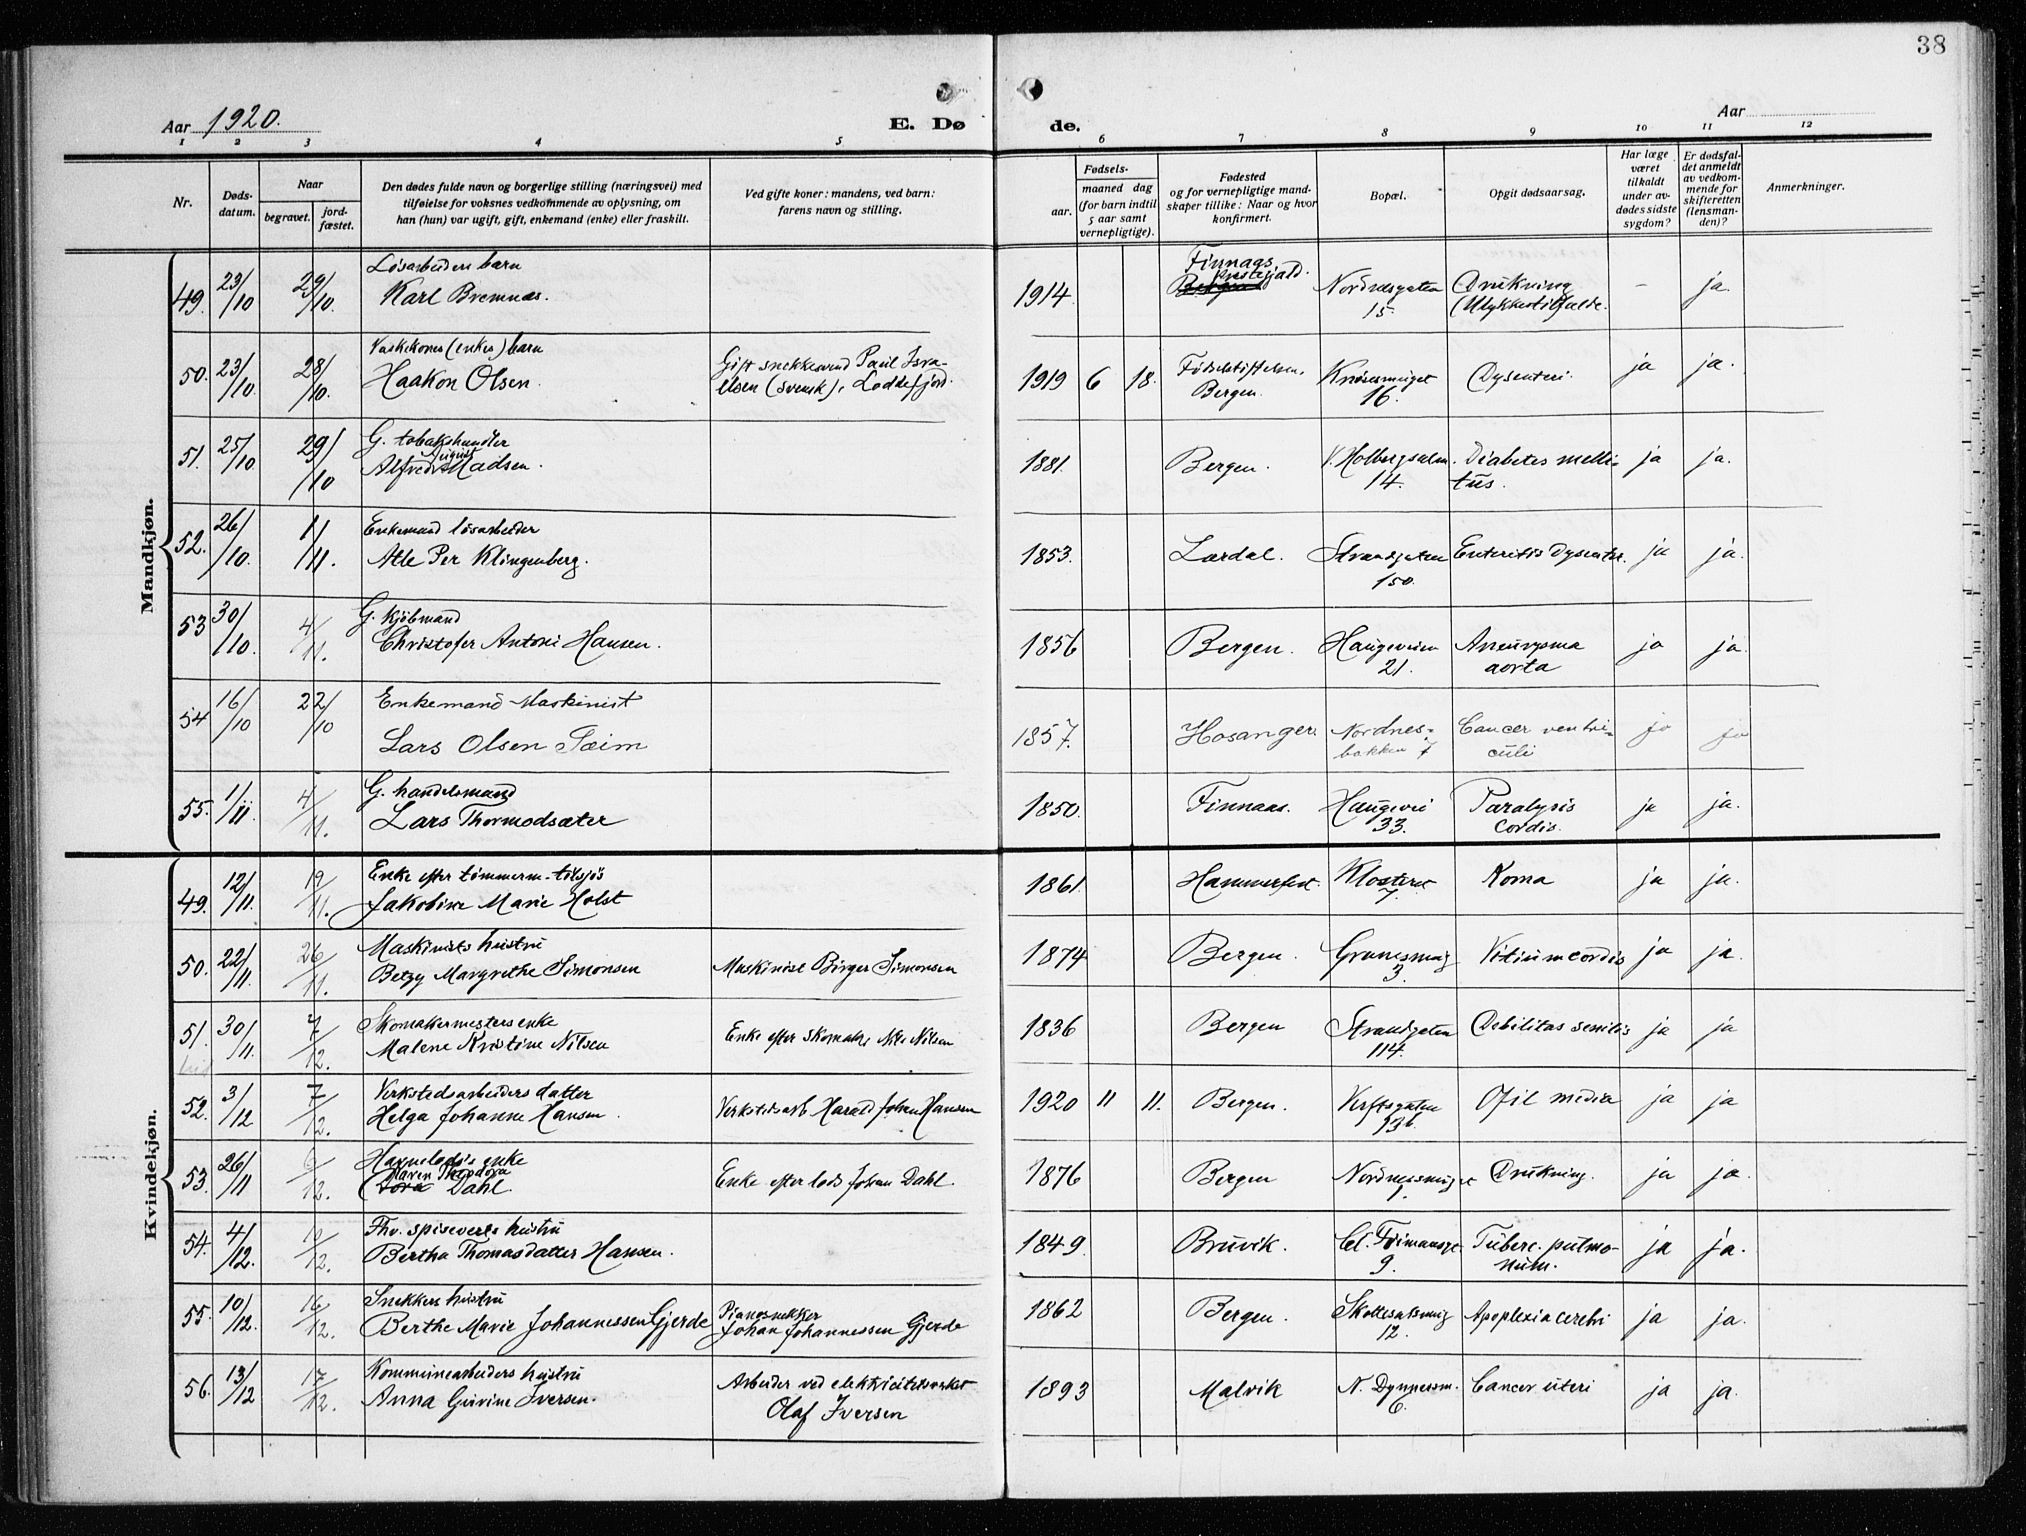 38
Aar 1920.
E. Dø
de.
Aar
1 2 3 4 5 6 7 8 9 10 11 12
Nr.
Døds-
datum.
Naar
begravet.
jord-
fæstet.
Den dødes fulde navn og borgerlige stilling (næringsvei) med
tilføielse for voksnes vedkommende av oplysning, om
han (hun) var ugift, gift, enkemand (enke) eller fraskilt.
Ved gifte koner: mandens, ved barn:
farens navn og stilling.
Fødsels-
aar.
maaned dag
(for barn indtil
5 aar samt
vernepligtige).
Fødested
og for vernepligtige mand-
skaper tillike: Naar og hvor
konfirmert.
Bopæl.
Opgit dødsaarsag.
Har læge
været
tilkaldt
under av-
dødes sidste
sygdom?
Er dødsfal-
det anmeldt
av vedkom-
mende for
skifteretten
(lensman-
den)?
Anmerkninger.
Mandkjøn.
49. 23/10 29/10. Løsarbeiders barn
Karl Bremnes.
1914. Finnaas
prestegjæld.
Bergen
Nordnesgaten
15.
Drukning
(Ulykkestilfælde.
- ja.
50. 23/10. 28/10. Vaskekones (enkes) barn
Haakon Olsen.
Gift snekkersvend Paul Isra-
elsen (svensk), Loddefjord.
1919 6 18. Fødselstiftelsen,
Bergen.
Knøsesmuget
16.
Dysenteri.
ja ja.
51. 25/10 29/10 G. tobakshandler
August
Alfred Madsen.
1881. Bergen.
V. Holbergsalm.
14.
Diabetes melli-
tus.
ja ja.
52. 26/10. 1/11. Enkemand løsarbeider
Atle Per Klingenberg.
1853. Lærdal.
Strandgaten
150.
Enteritis Dysenter.
ja ja.
53 30/10. 4/11. G. Kjøbmand
Christofer Antoni Hansen.
1856 Bergen.
Haugeveien
21.
Aneurysma
aorta
ja ja
54 16/10 22/10 Enkemand Maskinist
Lars Olsen Sæim
1857. Hosanger.
Nordnes-
bakken 7
Cancer ventri-
culi
ja ja
55. 1/11. 4/11. G. handelsmand
Lars Thormodsæter
1850. Finnaas.
Haugevei
33.
Paralysis
cordis.
ja ja.
Kvindekjøn.
49. 12/11. 19/11. Enke efter tømmerm. tilsjøs
Jakobine Marie Holst
1861. Hammerfest.
Klosteret
7.
Koma
ja ja.
50. 22/11. 26/11. Maskinists hustru
Betzy Margrethe Simonsen
Maskinist Birger Simonsen
1874 Bergen.
3.
Vitium cordis
ja ja.
51. 30/11. 7/12. Skomakermesters enke
Malene Kristine Nilsen
Enke efter skomaker Nils Nilsen
1836 Bergen
Strandgaten
114.
Debilitas senilis
ja ja
52. 3/12 7/12. Verkstedsarbeiders datter
Helga Johanne Hansen.
Verkstedsarb. Harald Johan Hansen
1920 11 11. Bergen.
Verftsgaten
13b.
Otit media
ja ja
53. 26/11 6/12. Havnelods's enke
Maren Theodora
Tora Dahl.
Enke efter lods Johan Dahl.
1876 Bergen
Nordnessmuget
Drukning.
ja ja.
54. 4/12. 10/12. Fhv. spiseverts hustru
Bertha Thomasdatter Hansen.
1849. Bruvik.
9.
Tuberc. pulmo-
num.
ja ja.
55. 10/12. 16/12. Snekkers hustru
Berthe Marie Johannessen Gjerde
Pianosnekker
Johan Johannessen Gjerde
1862 Bergen.
12.
Apoplexia cerebri
ja ja.
56. 13/12 17/12. Kommunearbeiders hustru
Anna Iversen.
Arbeider ved elektricitetsverket
Olaf Iversen
1893 Malvik
N. Dynnersm.
6.
Cancer uteri
ja ja.